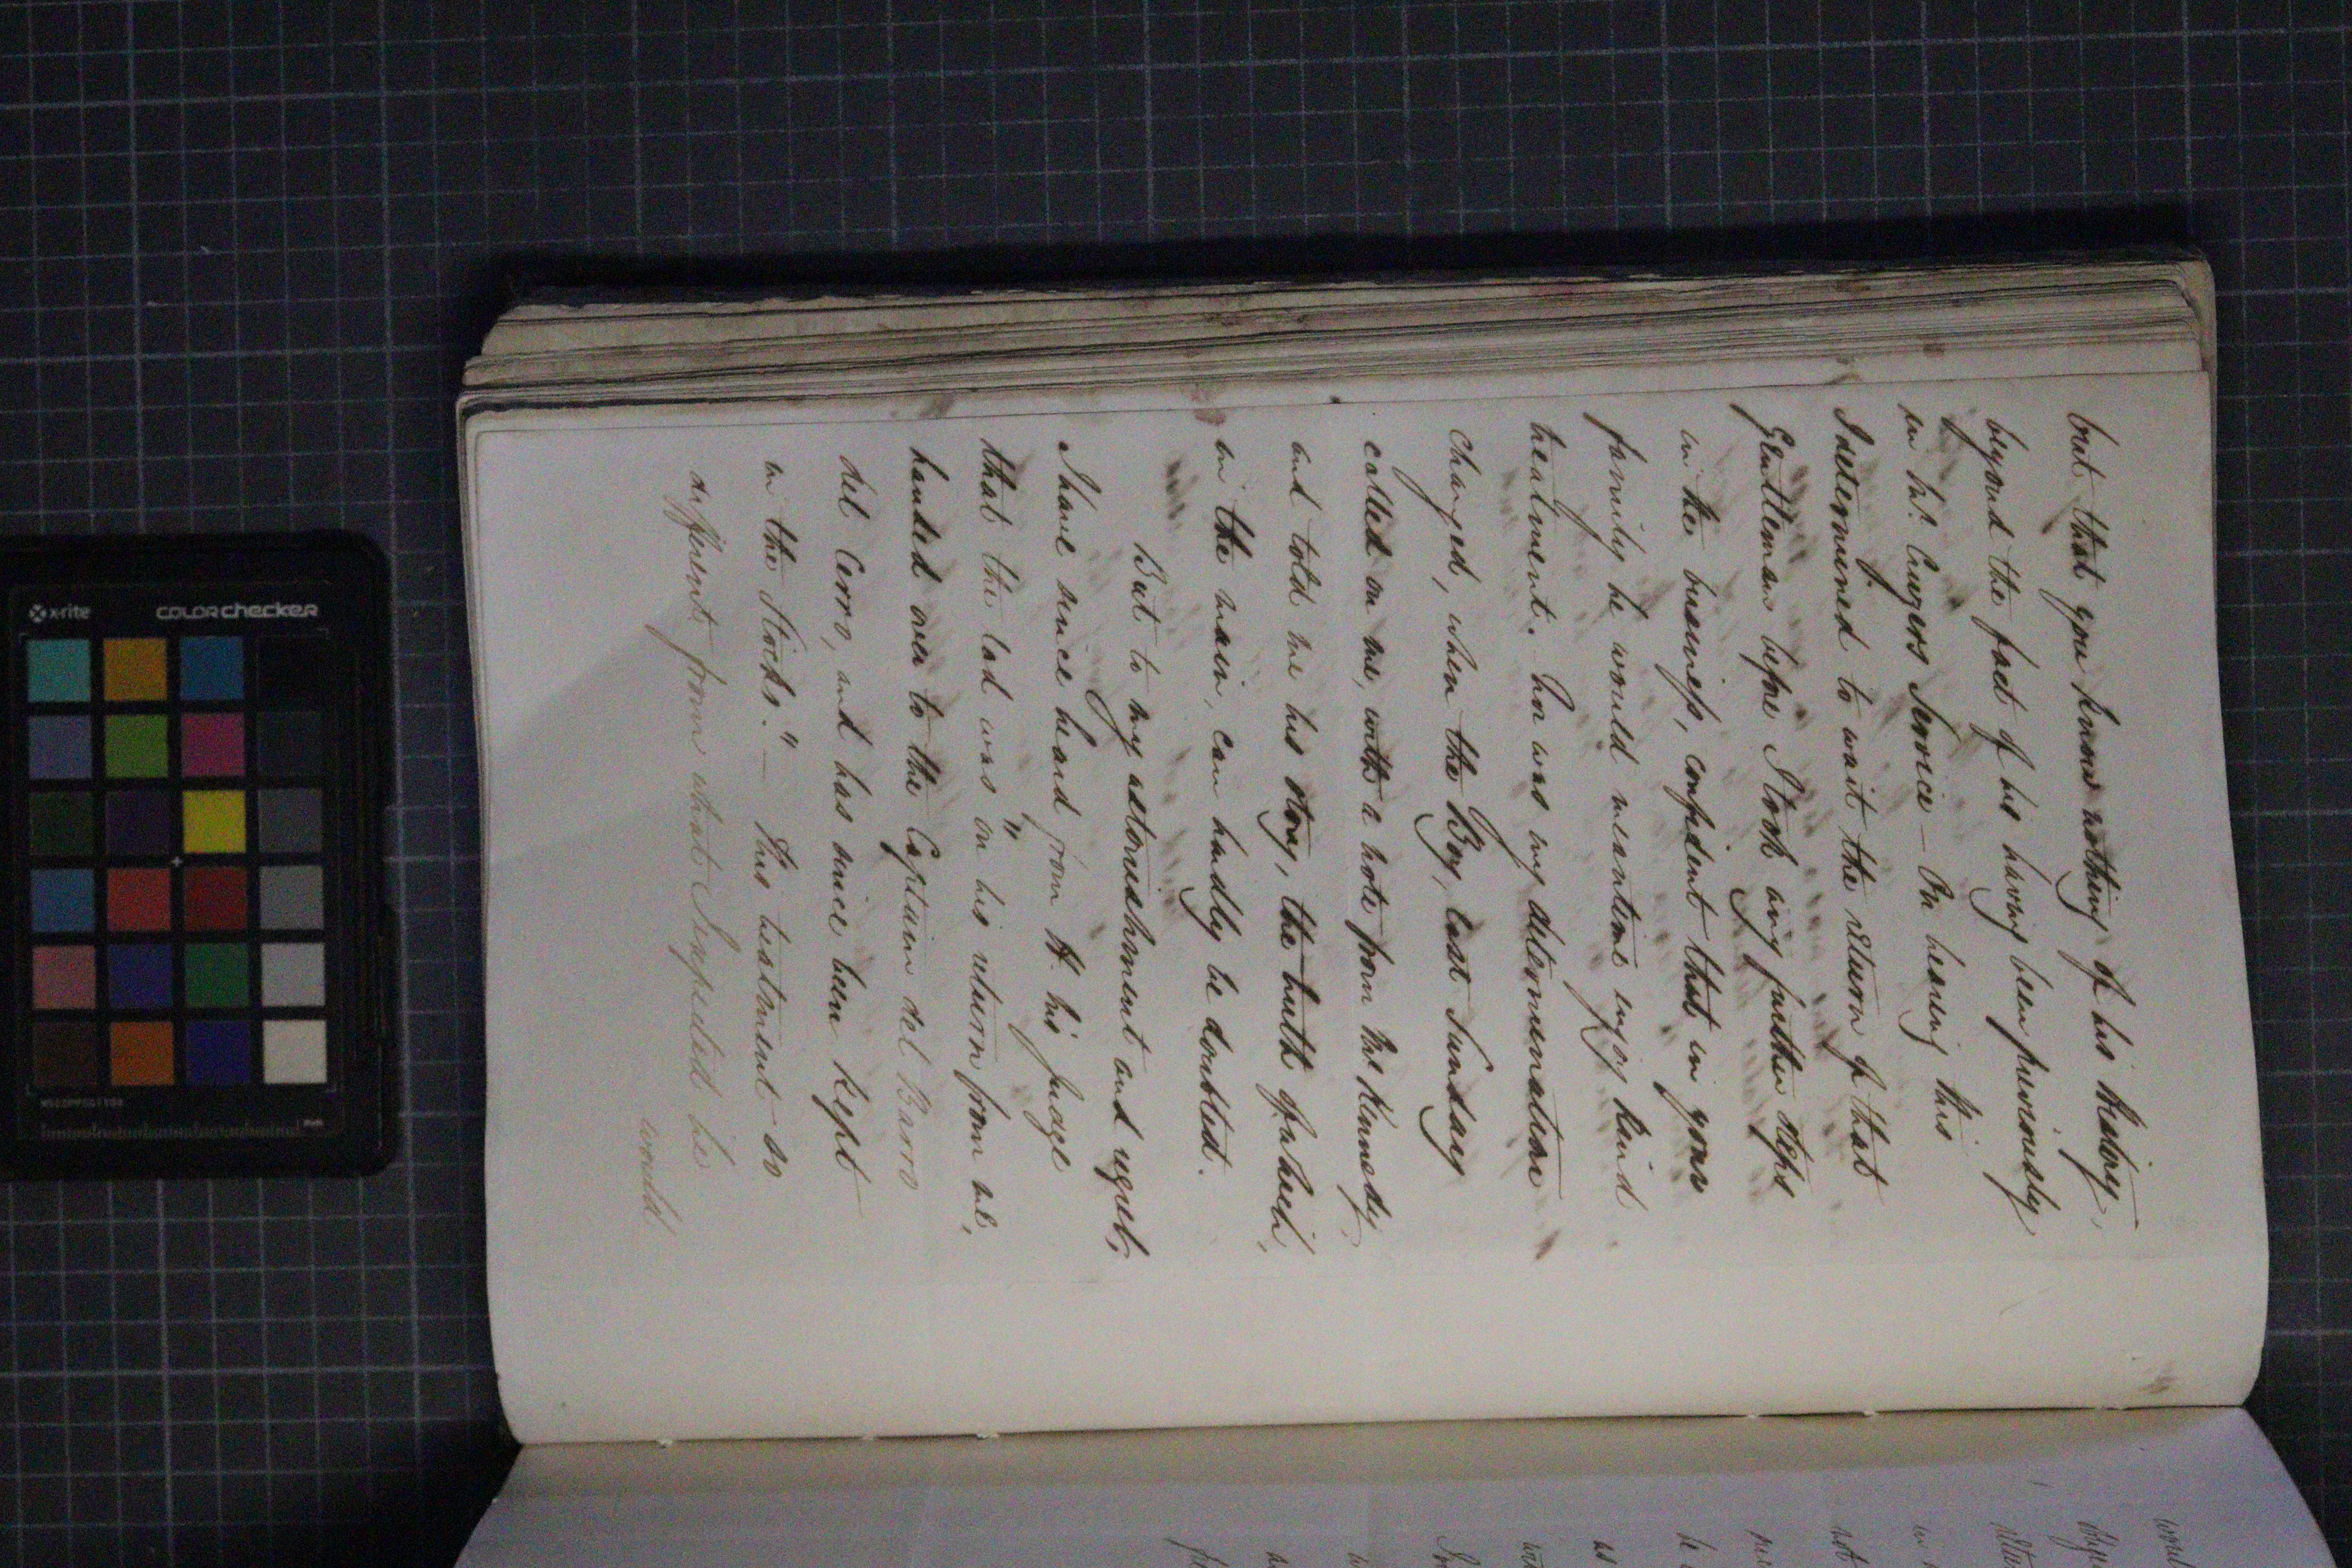 but that you know nothing of his history,
beyond the fact of his having been previously
in Mr. Cuyers Service — On hearing this
I determined to wait the return of that
Gentleman before I took any further steps
in the business, confident that in your
family he would meantime enjoy kind
treatment. Nor was my determination
changed, when the Boy, last Sunday
called on me, with a note from Mr. Kennedy,
and told me his story, the truth of which,
in the main, can hardly be doubted.
But to my astonishment and regret,
I have since heard from his Judge
that the lad was "on his return from me,
handed over to the Captain del Barro
del Cerro, and has since been kept
in the Stocks." — This treatment so
different from what I expected he
would
x-rite
colorchecker